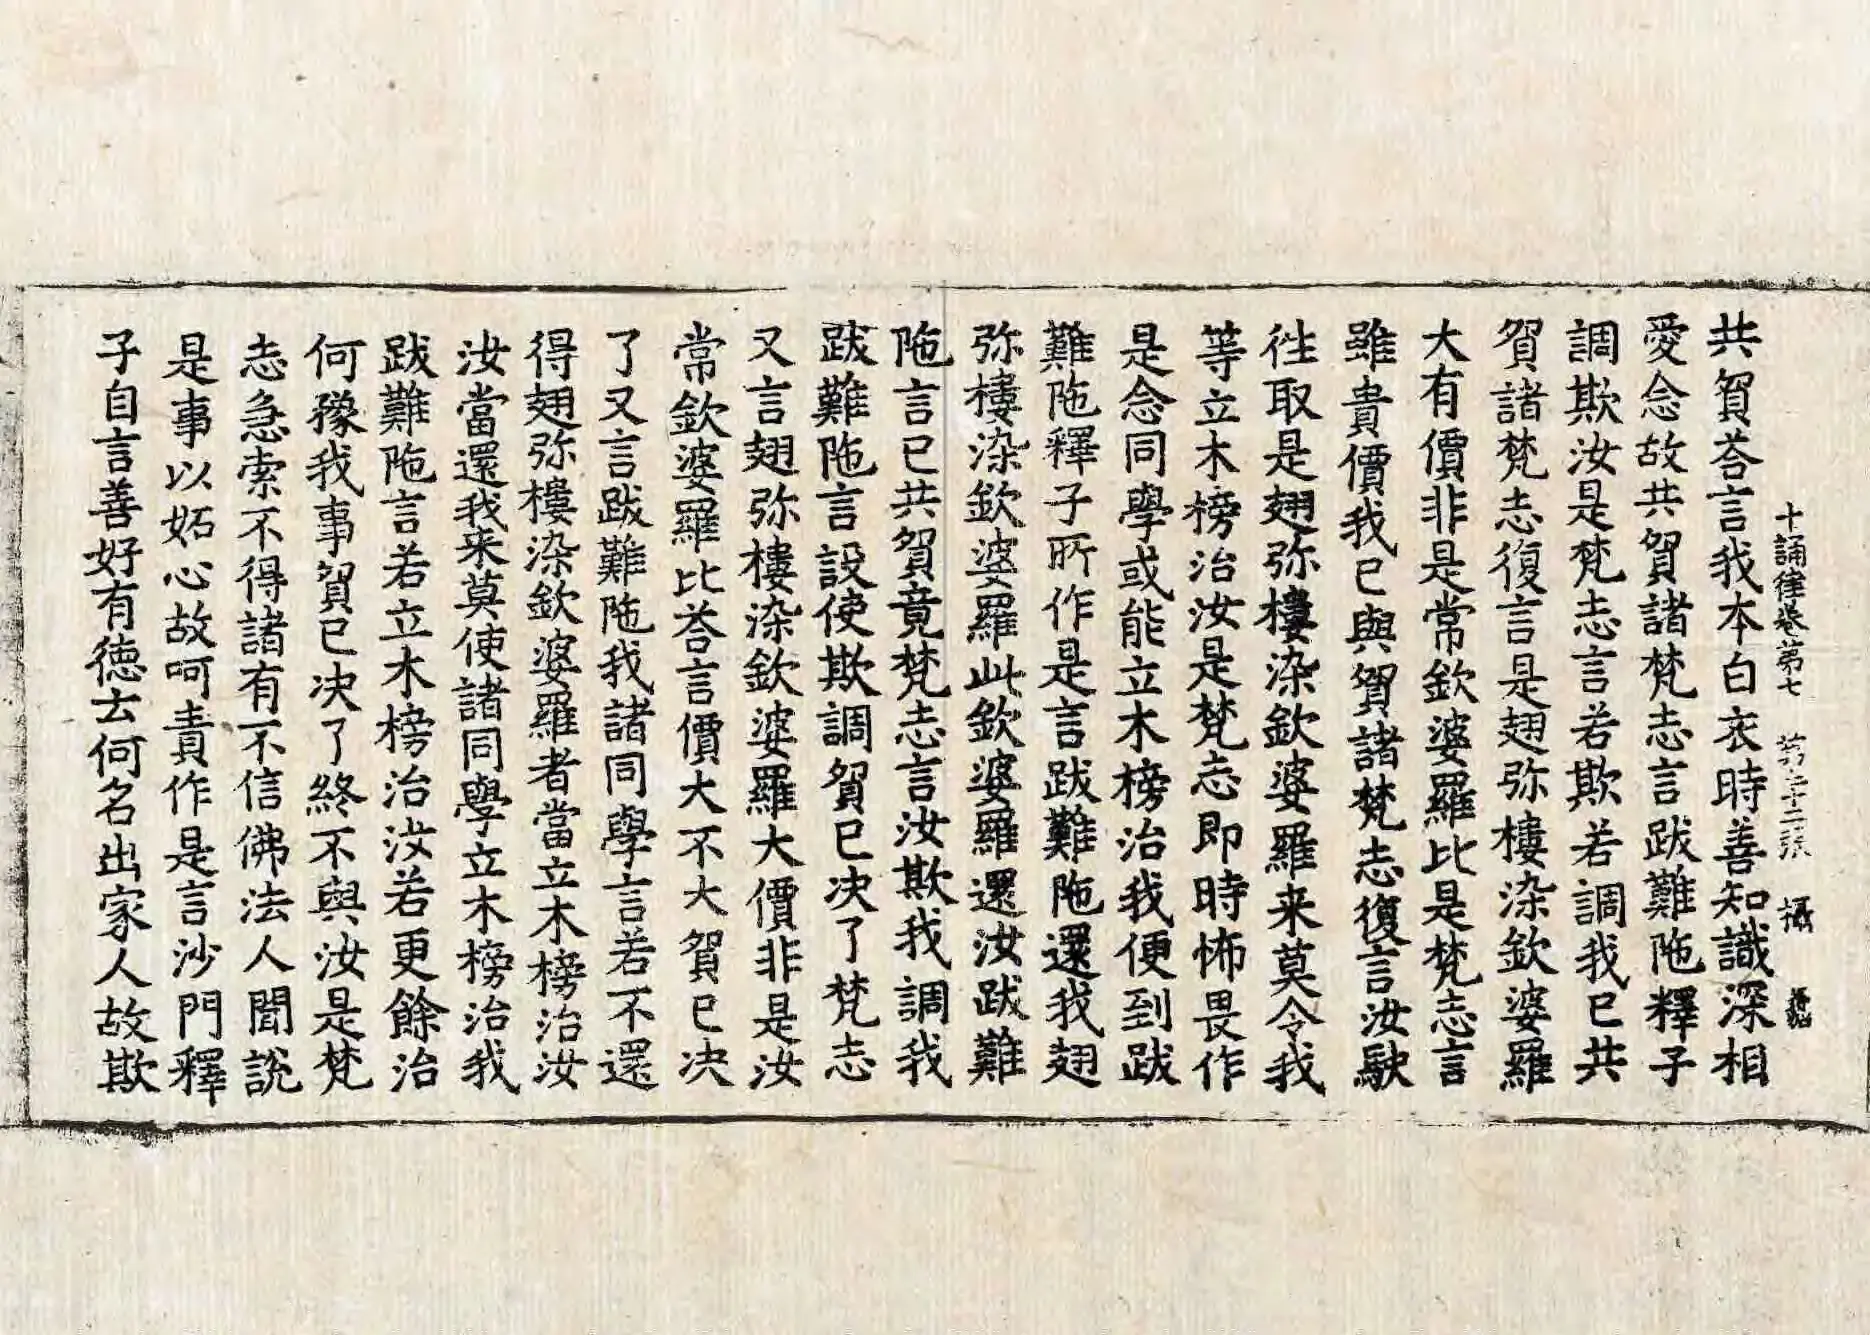 十誦律卷第七 第三十二張 攝
共賀荅言我本白衣時善知識深相
愛念故共賀諸梵志言跋難陁釋子
調欺汝是梵志言若欺若調我已共
賀諸梵志復言是翅弥樓染欽婆羅
大有價非是常欽婆羅比是梵志言
雖貴價我已與賀諸梵志復言汝駃
徃取是翅弥樓染欽婆羅来莫令我
等立木榜治汝是梵志即時怖畏作
是念同學或能立木榜治我便到跋
難陁釋子所作是言跋難陁還我翅
弥樓染欽婆羅此欽婆羅還汝跋難
陁言已共賀竟梵志言汝欺我調我
跋難陁言設使欺調賀已决了梵志
又言翅弥樓染欽婆羅大價非是汝
常欽婆羅比荅言價大不大賀已决
了又言跋難陁我諸同學言若不還
得翅弥樓染欽婆羅者當立木榜治汝
汝當還我来莫使諸同學立木榜治我
跋難陁言若立木榜治汝若更餘治
何豫我事賀已决了終不與汝是梵
志急索不得諸有不信佛法人聞說
是事以妬心故呵責作是言沙門釋
子自言善好有徳去何名出家人故欺